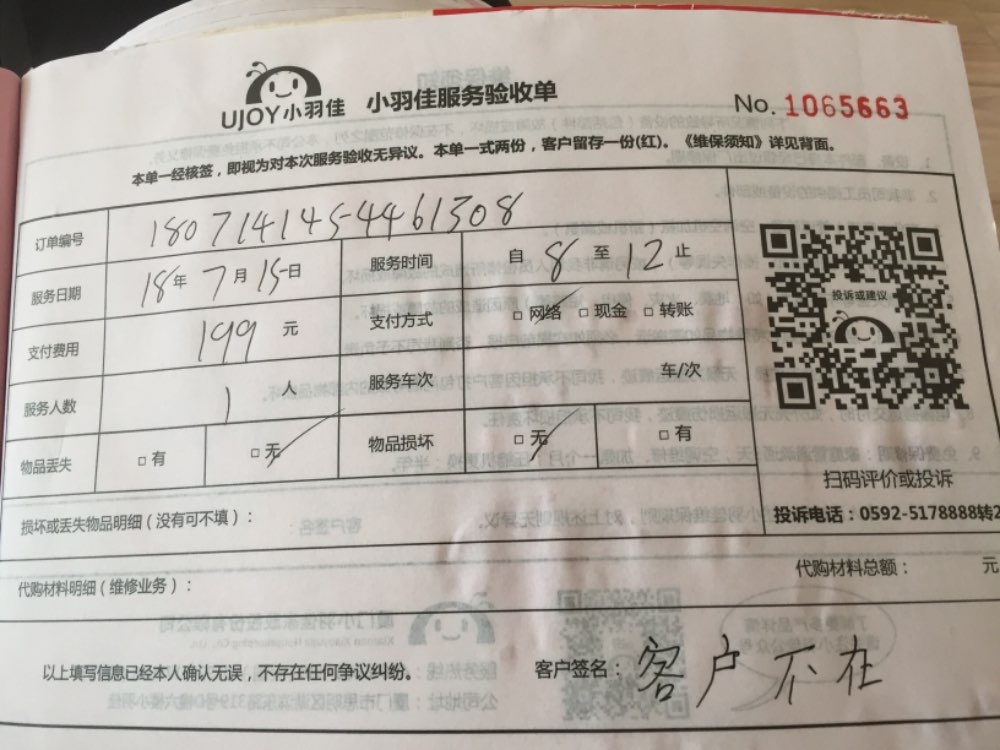 UJOY小羽佳 小羽佳服务验收单 No. 1065663
本单一经核签，即视为对本次服务验收无异议。本单一式两份，客户留存一份(红)。《维保须知》详见背面。
订单编号 1807141454461308
服务日期 18年 7月 15日 服务时间 自 8 至 12 止
支付费用 199 元 支付方式 □ 网络 □ 现金 □ 转账
服务人数 1 人 服务车次 车/次
物品丢失 □ 有 □ 无 物品损坏 □ 无 □ 有
投诉或建议
扫码评价或投诉
投诉电话：0592-5178888转2
损坏或丢失物品明细（没有可不填）：
代购材料明细（维修业务）： 代购材料总额： 元
以上填写信息已经本人确认无误，不存在任何争议纠纷。 客户签名：客户不在